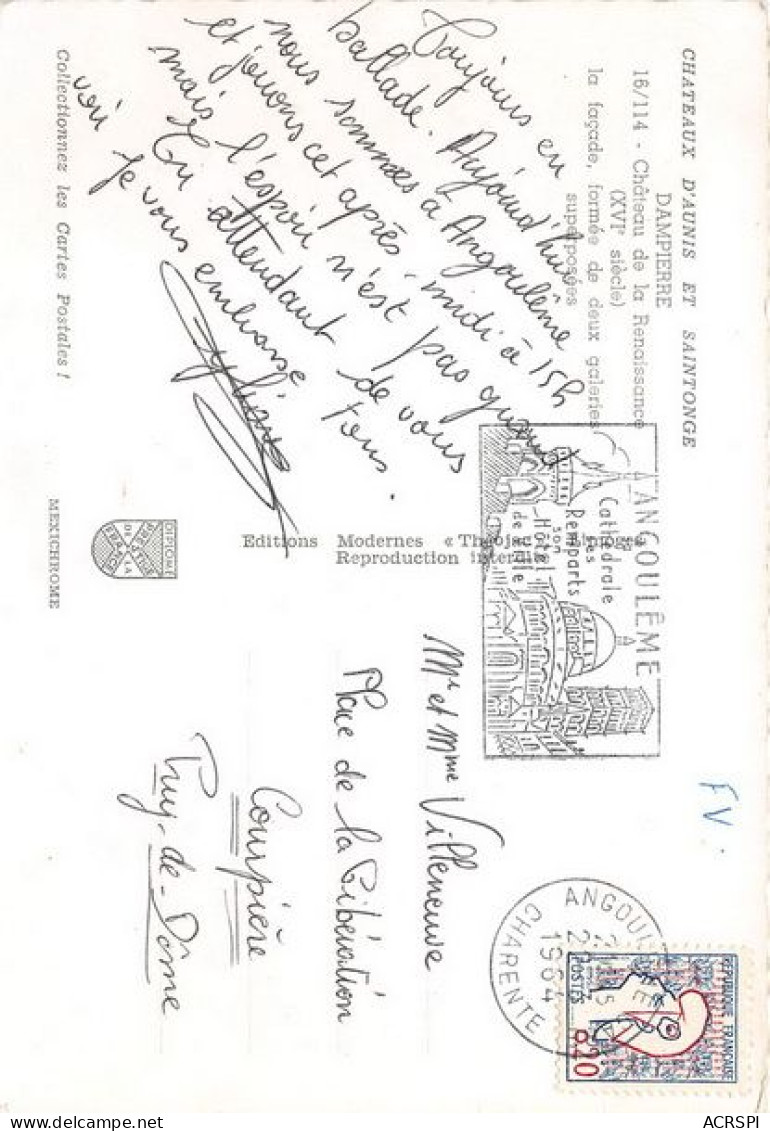 CHATEAUX D'AUNIS ET SAINTONGE
DAMPIERRE
16/114 - Château de la Renaissance
(XVIe siècle)
la façade, formée de deux galeries
superposées
Toujours en
ballade. Aujourd'hui
nous sommes à Angoulême
et jouons cet après-midi à 15h
mais l'espoir n'est pas grand
En attendant de vous
voir je vous embrasse tous.
Collectionnez les Cartes Postales !
MEXICHROME
DIPLOME
PRESTIGE
DE LA
FRANCE
Editions Modernes « Théojac » Limoges
Reproduction interdite
ANGOULÊME
Cathédrale
ses
Remparts
son
Hôtel
de Ville
FV.
ANGOULEME
1964
CHARENTE
REPUBLIQUE FRANÇAISE
POSTES
0,20
Mr et Mme Villeneuve
Place de la Libération
Courpière
Puy-de-Dôme
ACRSPI